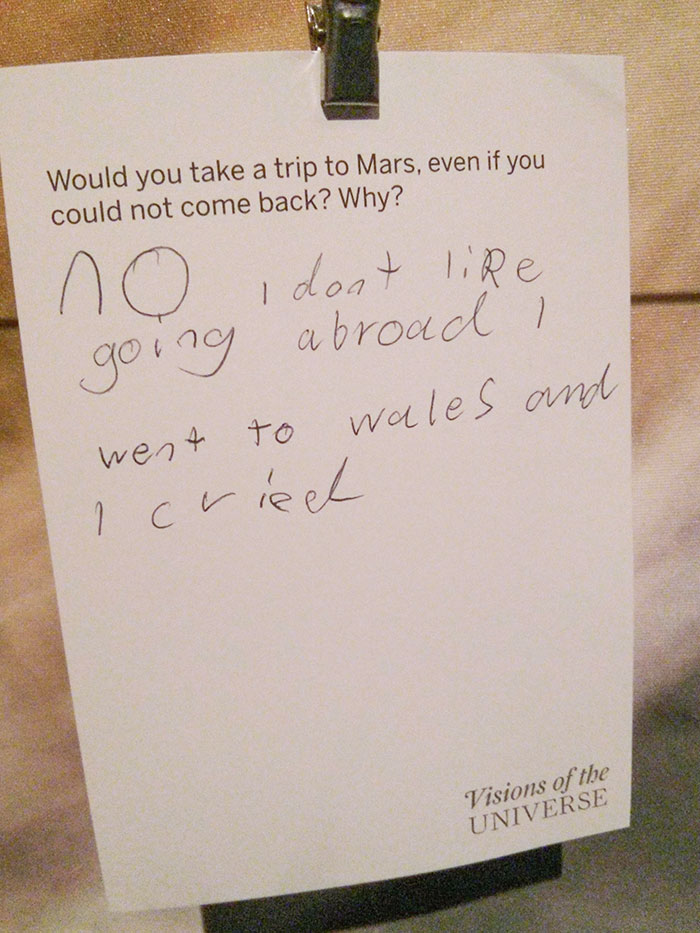 Would you take a trip to Mars, even if you
could not come back? Why?
NO I dont like
going abroad I
went to wales and
I cried
Visions of the
UNIVERSE